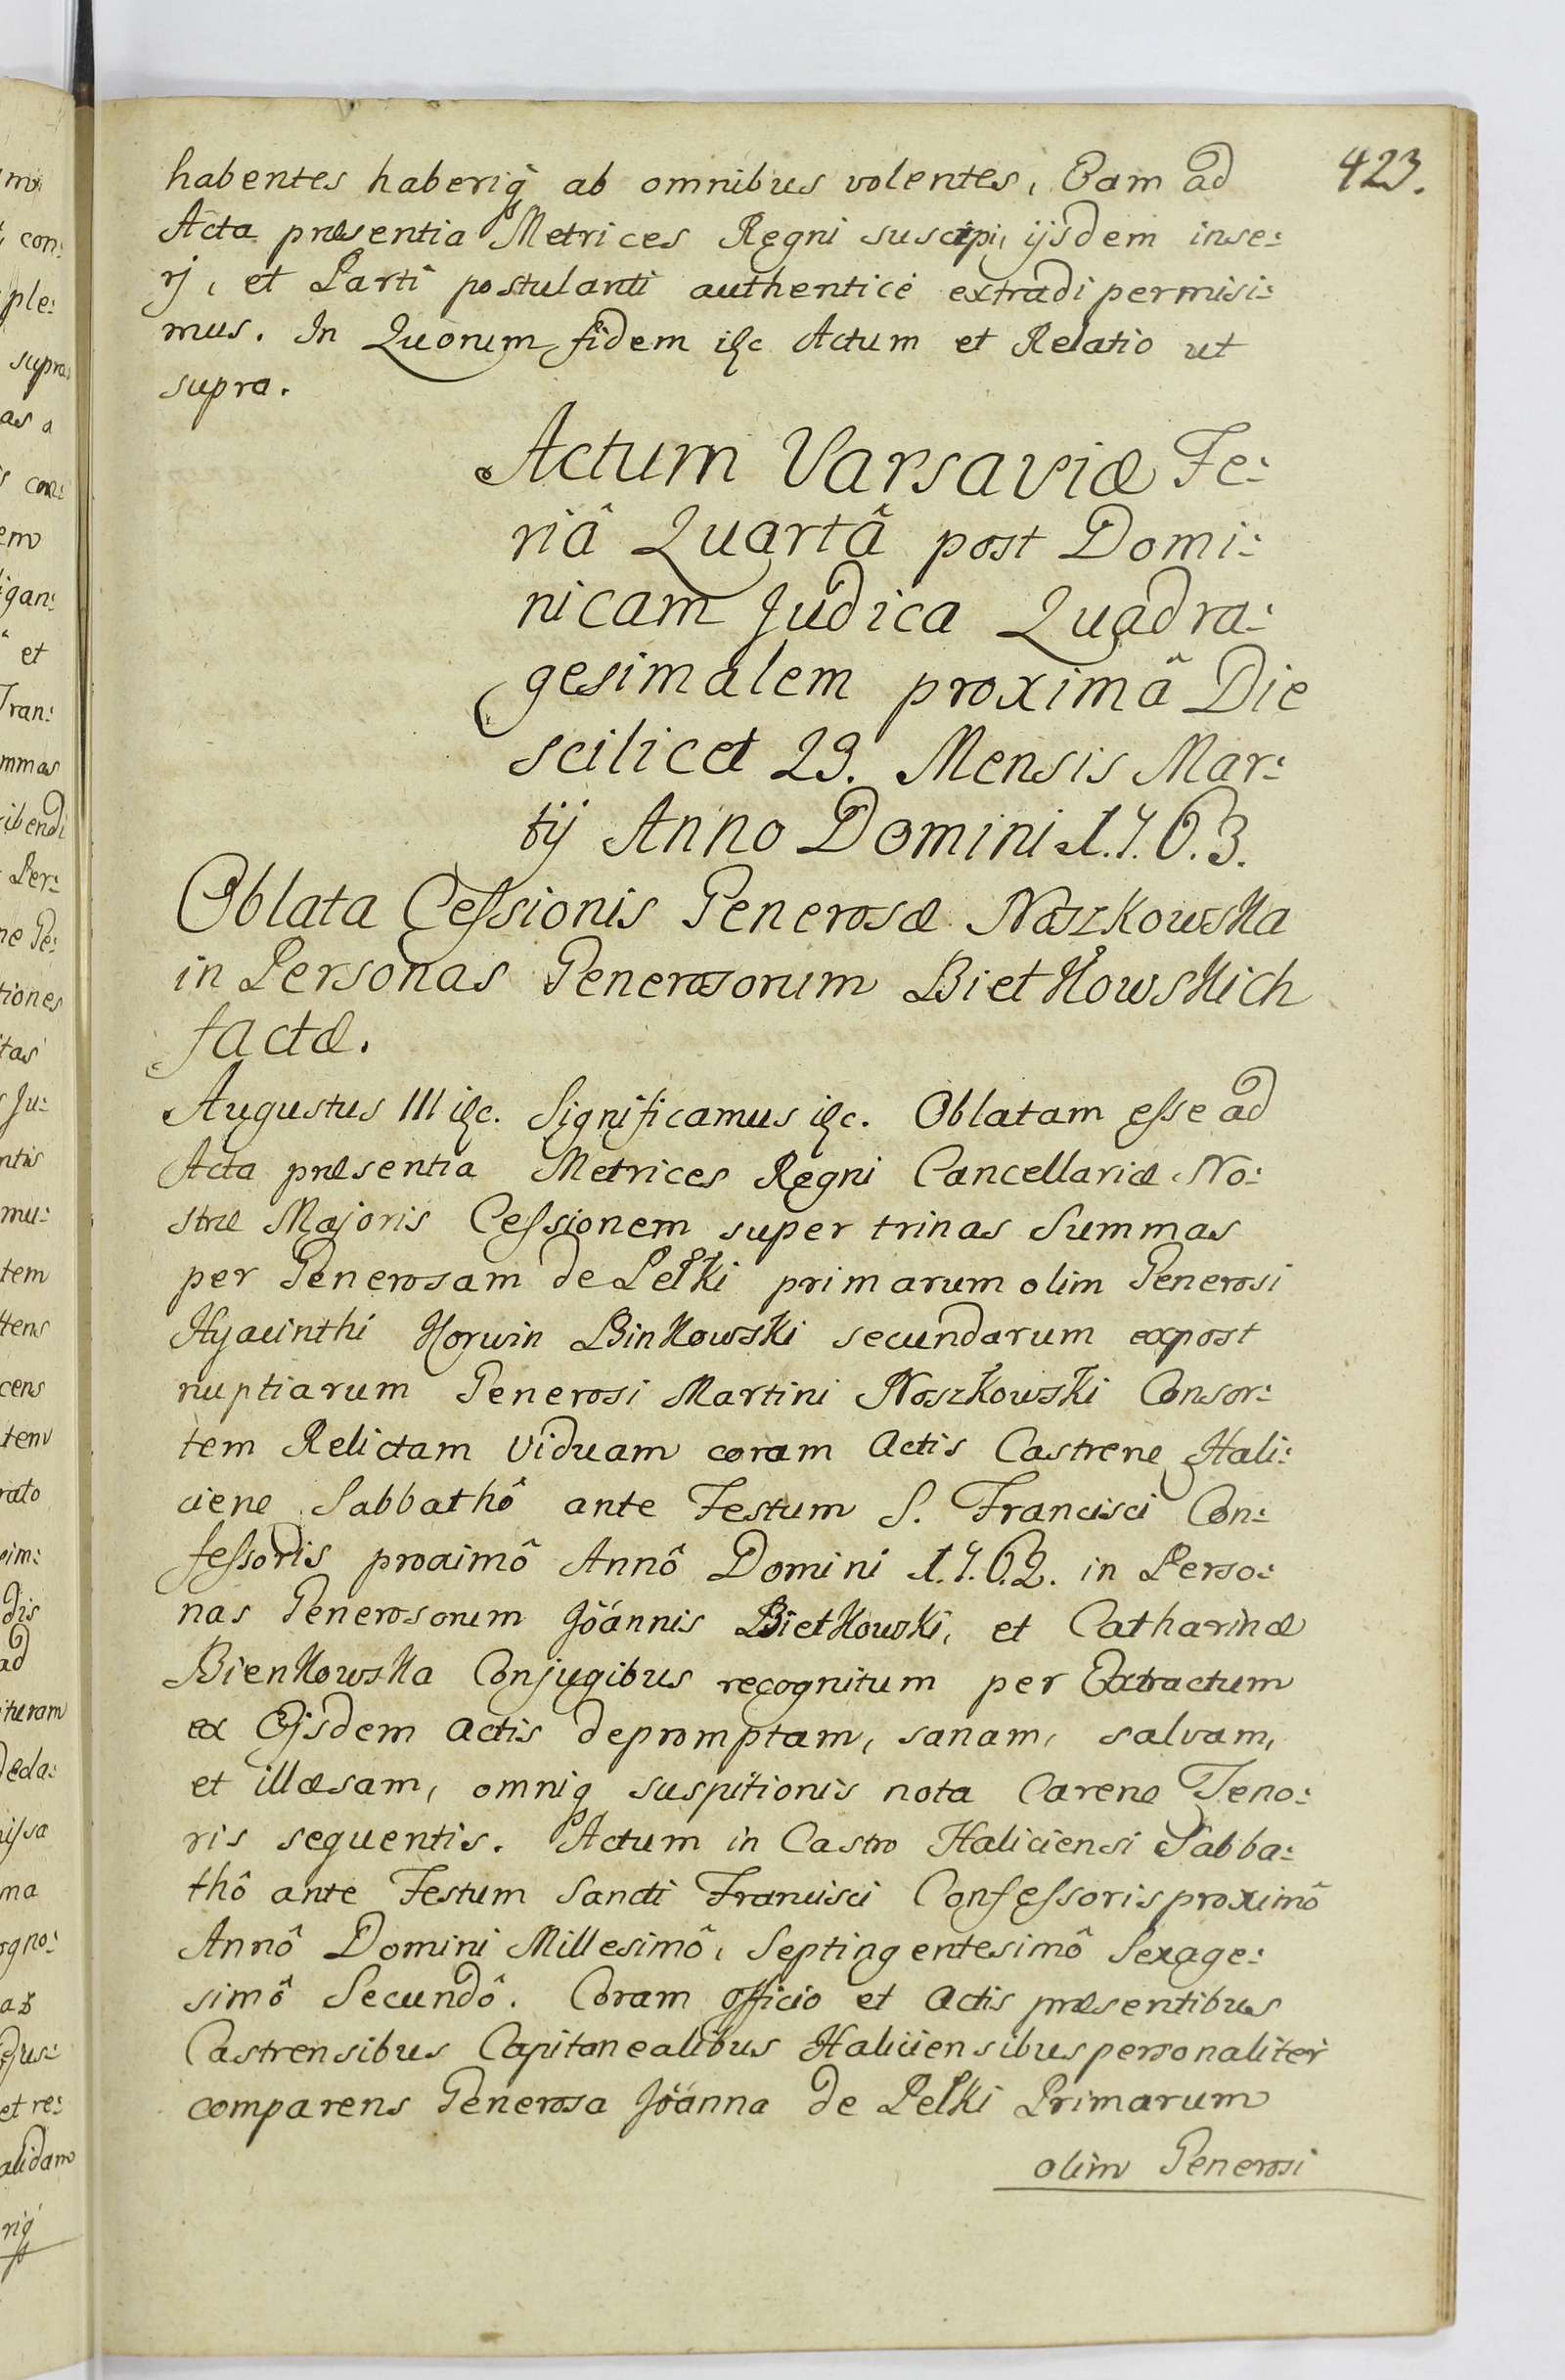 423.
habentes haberiq; ab omnibus volentes, Eam ad
Acta præsentia Metrices Regni suscipi, ijsdem inse:
rj, et Parti postulanti authentice extradi permisi:
mus. In Quorum fidem &c Actum et Relatio ut
supra.
Actum Varsaviæ Fe:
riâ Quartâ post Domi:
nicam Judica Quadra:
gesimalem proximâ Die
scilicet 23. Mensis Mar:
tij Anno Domini 1.7.6.3.
Oblata Cessionis Generosæ Noszkowska
in Personas Generosorum Bietkowskich
factæ.
Augustus III &c. Significamus &c. Oblatam esse ad
Acta præsentia Metrices Regni Cancellariæ No:
stræ Majoris Cessionem super trinas Summas
per Generosam de Pełki primarum olim Generosi
Hyacinthi Korwin Binkowski secundarum expost
nuptiarum Generosi Martini Noszkowski Consor:
tem Relictam Viduam coram Actis Castrene Hali:
ciene Sabbathô ante Festum S. Francisci Con:
fessoris proximô Annô Domini 1.7.6.2. in Perso:
nas Generosorum Joannis Bietkowski, et Catharinæ
Bienkowska Conjugibus recognitum per Extractum
ex Ejsdem Actis depromptam, sanam, salvam,
et illæsam, omniq; suspitionis nota Carene Teno:
ris sequentis. Actum in Castro Haliciensi Sabba:
thô ante Festum Sancti Francisci Confessoris proximô
Annô Domini Millesimô, Septingentesimô Sexage:
simô Secundô. Coram Officio et Actis præsentibus
Castrensibus Capitanealibus Haliciensibus personaliter
comparens Generosa Joanna de Pełki Primarum
olim Generosi